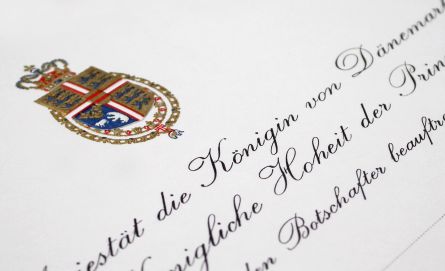 die Königin von Dänemark
Königliche Hoheit der Prin
den Botschafter beauftra